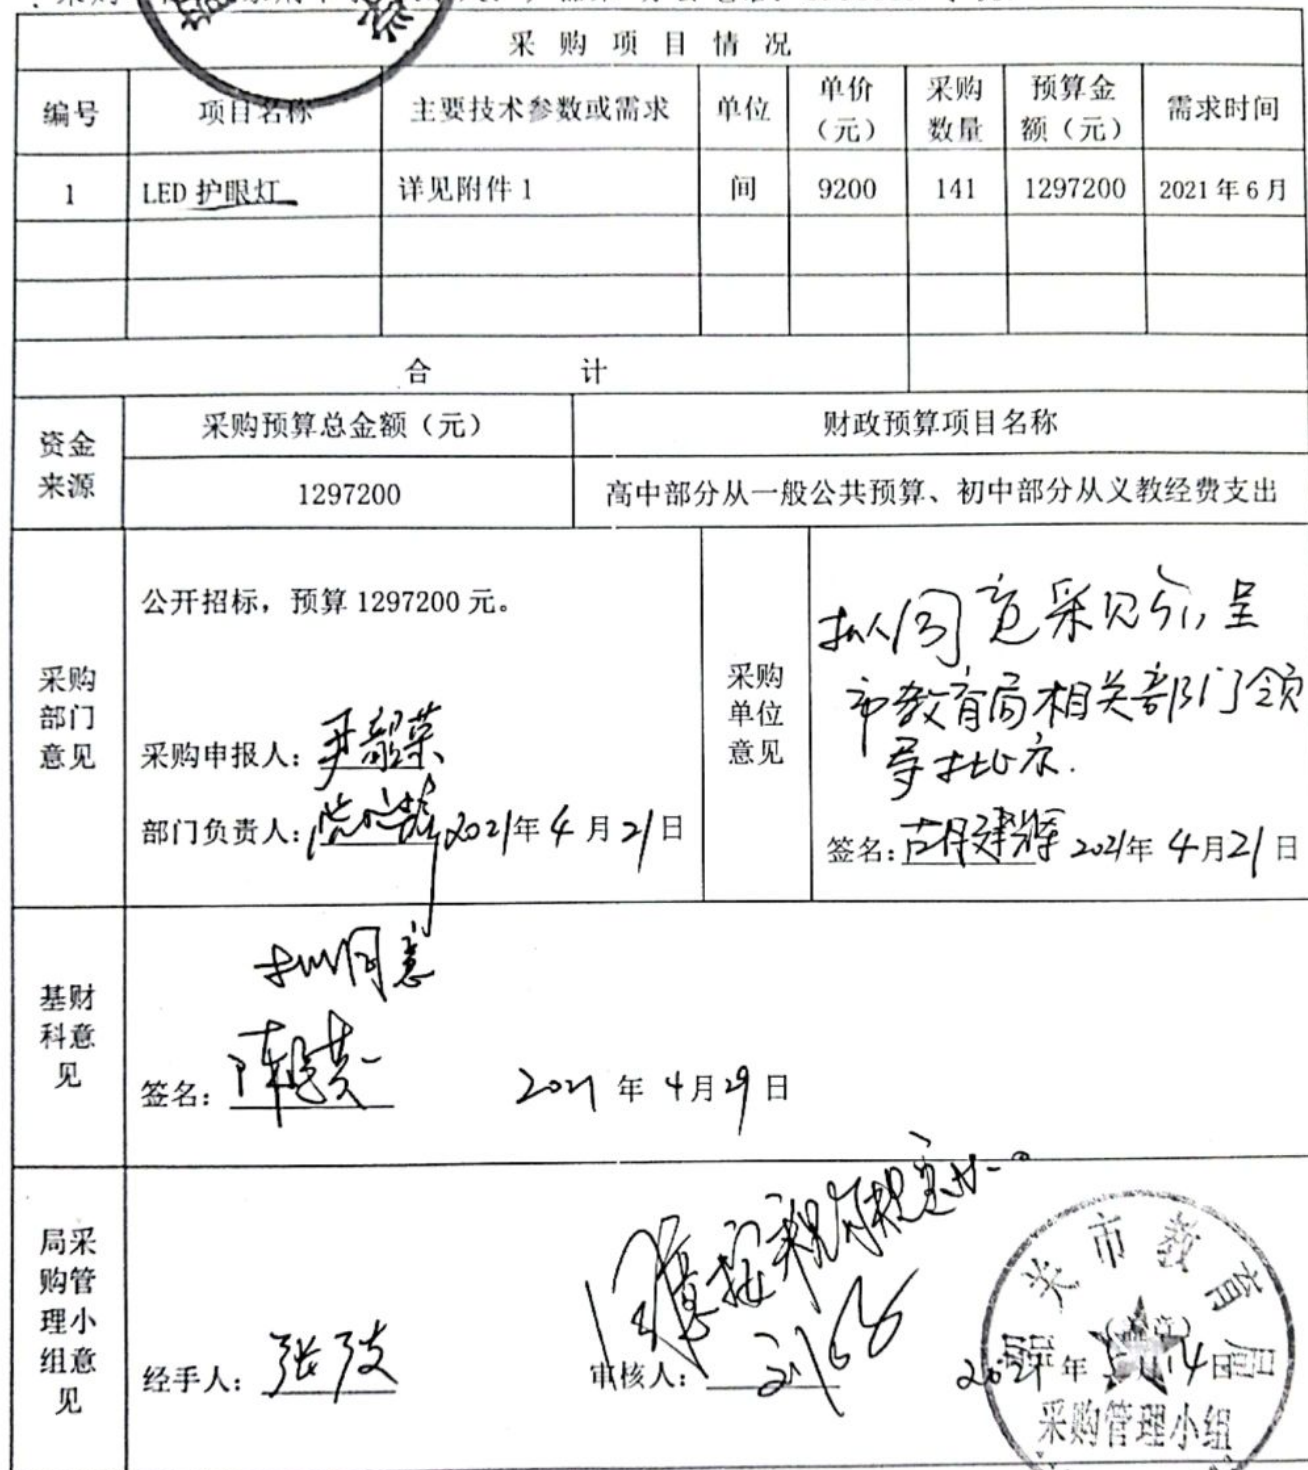 采购项目情况
编号 项目名称 主要技术参数或需求 单位 单价（元） 采购数量 预算金额（元） 需求时间
1 LED 护眼灯 详见附件 1 间 9200 141 1297200 2021 年 6 月
合 计
资金来源 采购预算总金额（元） 财政预算项目名称
1297200 高中部分从一般公共预算、初中部分从义教经费支出
采购部门意见
公开招标，预算 1297200 元。
采购申报人：
部门负责人： 2021年 4 月 21 日
采购单位意见
拟同意采购，呈
市教育局相关部门领
导批示.
签名：胡建辉 2021年 4月21日
基财科意见
拟同意
签名： 2021 年 4月29日
局采购管理小组意见
同意按采购
经手人：张
审核人：刘
2021年 5月14日
市教育局
采购管理小组